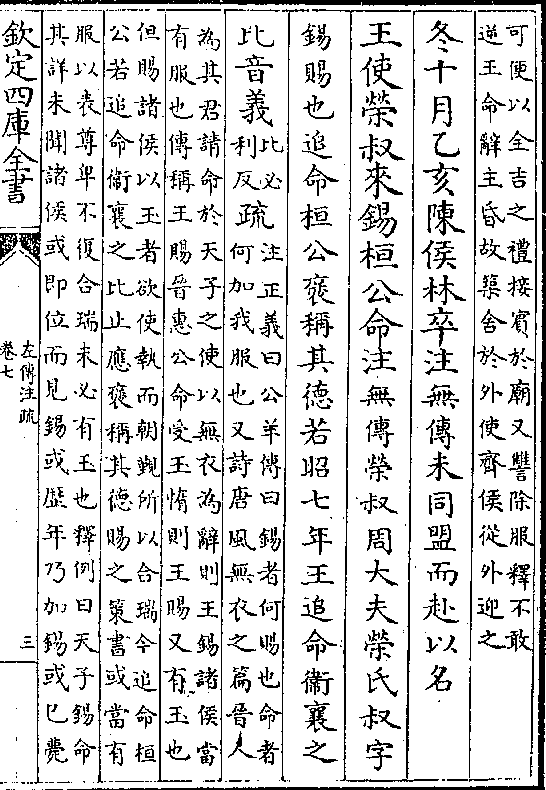 可便以全吉之禮接賓於廟又讐除服釋不敢
逆王命辭主昏故築舍於外使齊侯從外迎之
冬十月乙亥陳侯林卒注無傳未同盟而赴以名
王使榮叔來錫桓公命注無傳榮叔周大夫榮氏叔字
錫賜也追命桓公褒稱其德若昭七年王追命衞襄之
比音義
比必
利反
疏
注正義曰公羊傳曰錫者何賜也命者
何加我服也又詩唐風無衣之篇晉人
為其君請命於天子之使以無衣為辭則王錫諸侯當
有服也傳稱王賜晉惠公命受玉惰則王賜又有玉也
但賜諸侯以玉者欲使執而朝覲所以合瑞今追命桓
公若追命衞襄之比止應褒稱其德賜之策書或當有
服以表尊卑不復合瑞未必有玉也釋例曰天子錫命
其詳未聞諸侯或即位而見錫或歴年乃加錫或已薨
欽定四庫全書
左傳注疏
卷七
三